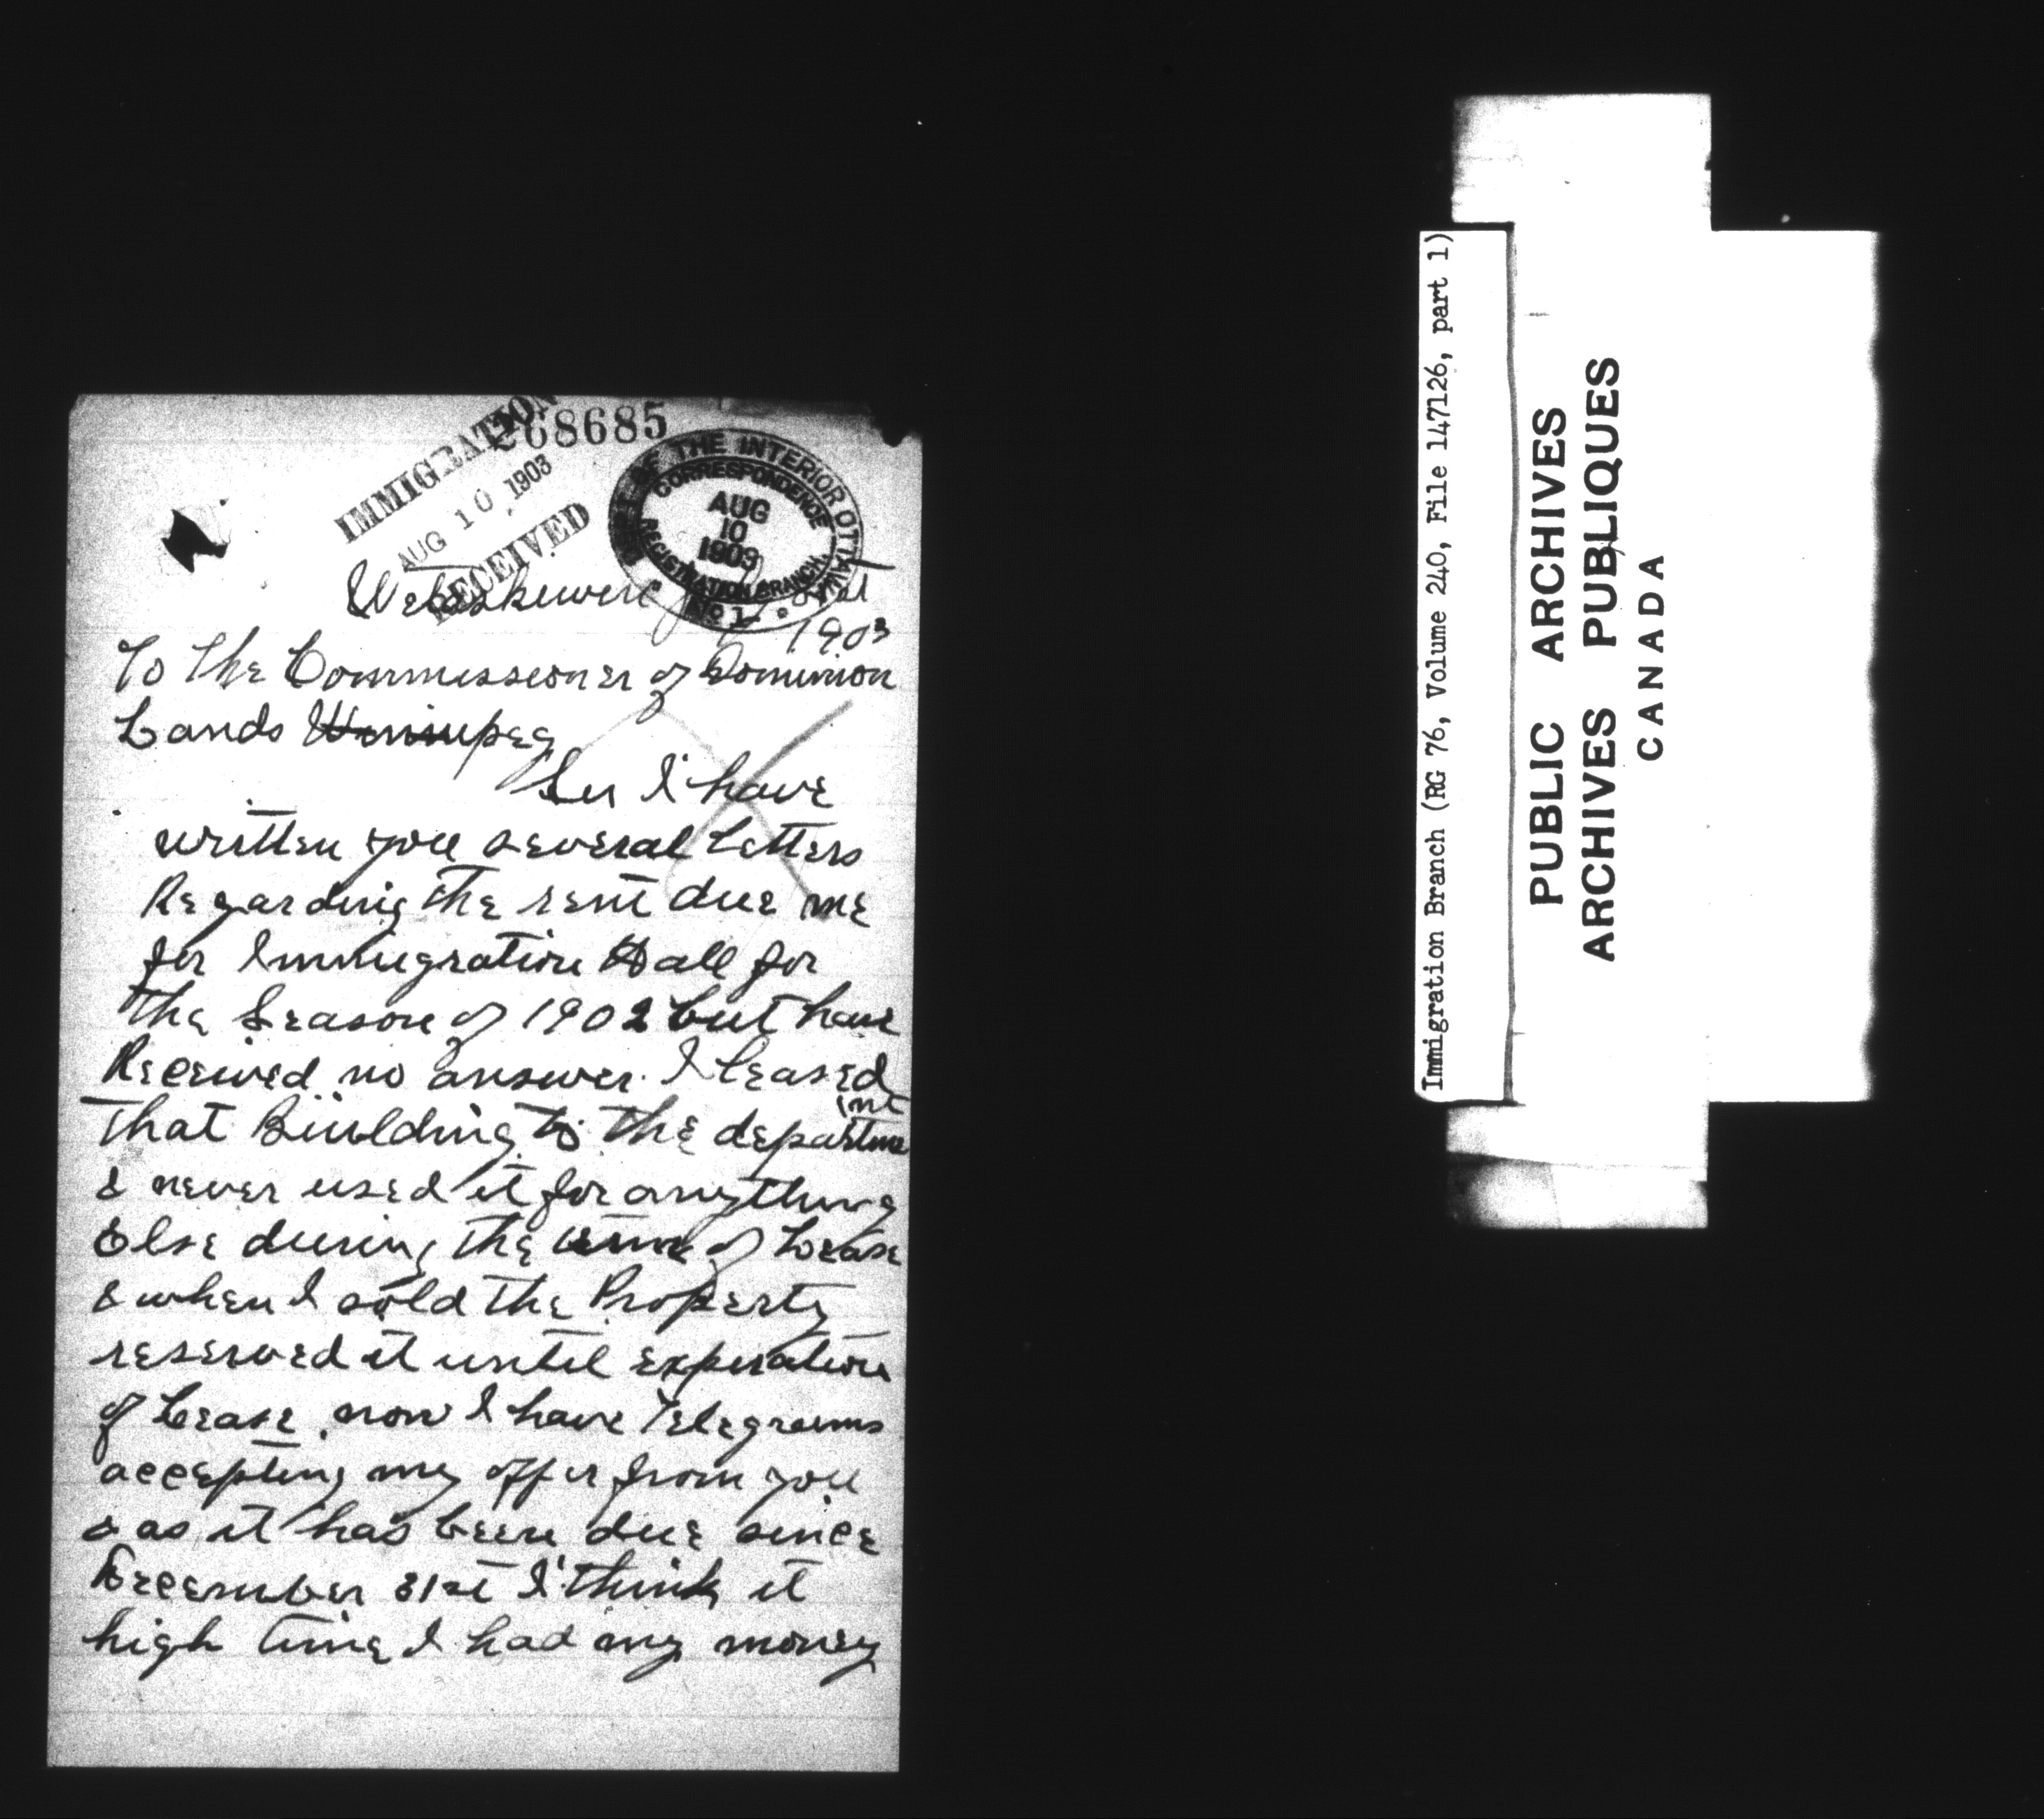 268685
IMMIGRATION
AUG 10, 1903
RECEIVED
OF THE INTERIOR OTTAWA
CORRESPONDENCE
AUG
10
1903
REGISTRATION BRANCH
No 1
Wetaskewin July 31st
1903
To The Commissioner of Dominion
Lands Winnipeg
Sir I have
written you several Letters
Regarding The rent due me
for Immigration Hall for
The Season of 1902 but have
Received no answer. I Leased
That Building to The department
& never used it for anything
Else during The term of Lease
& when I sold The Property
reserved it until expiration
of Lease. now I have Telegrams
accepting my offer from you
& as it has been due since
December 31st I think it
high time I had my money
Immigration Branch (RG 76, Volume 240, File 147126, part 1)
PUBLIC ARCHIVES
ARCHIVES PUBLIQUES
CANADA